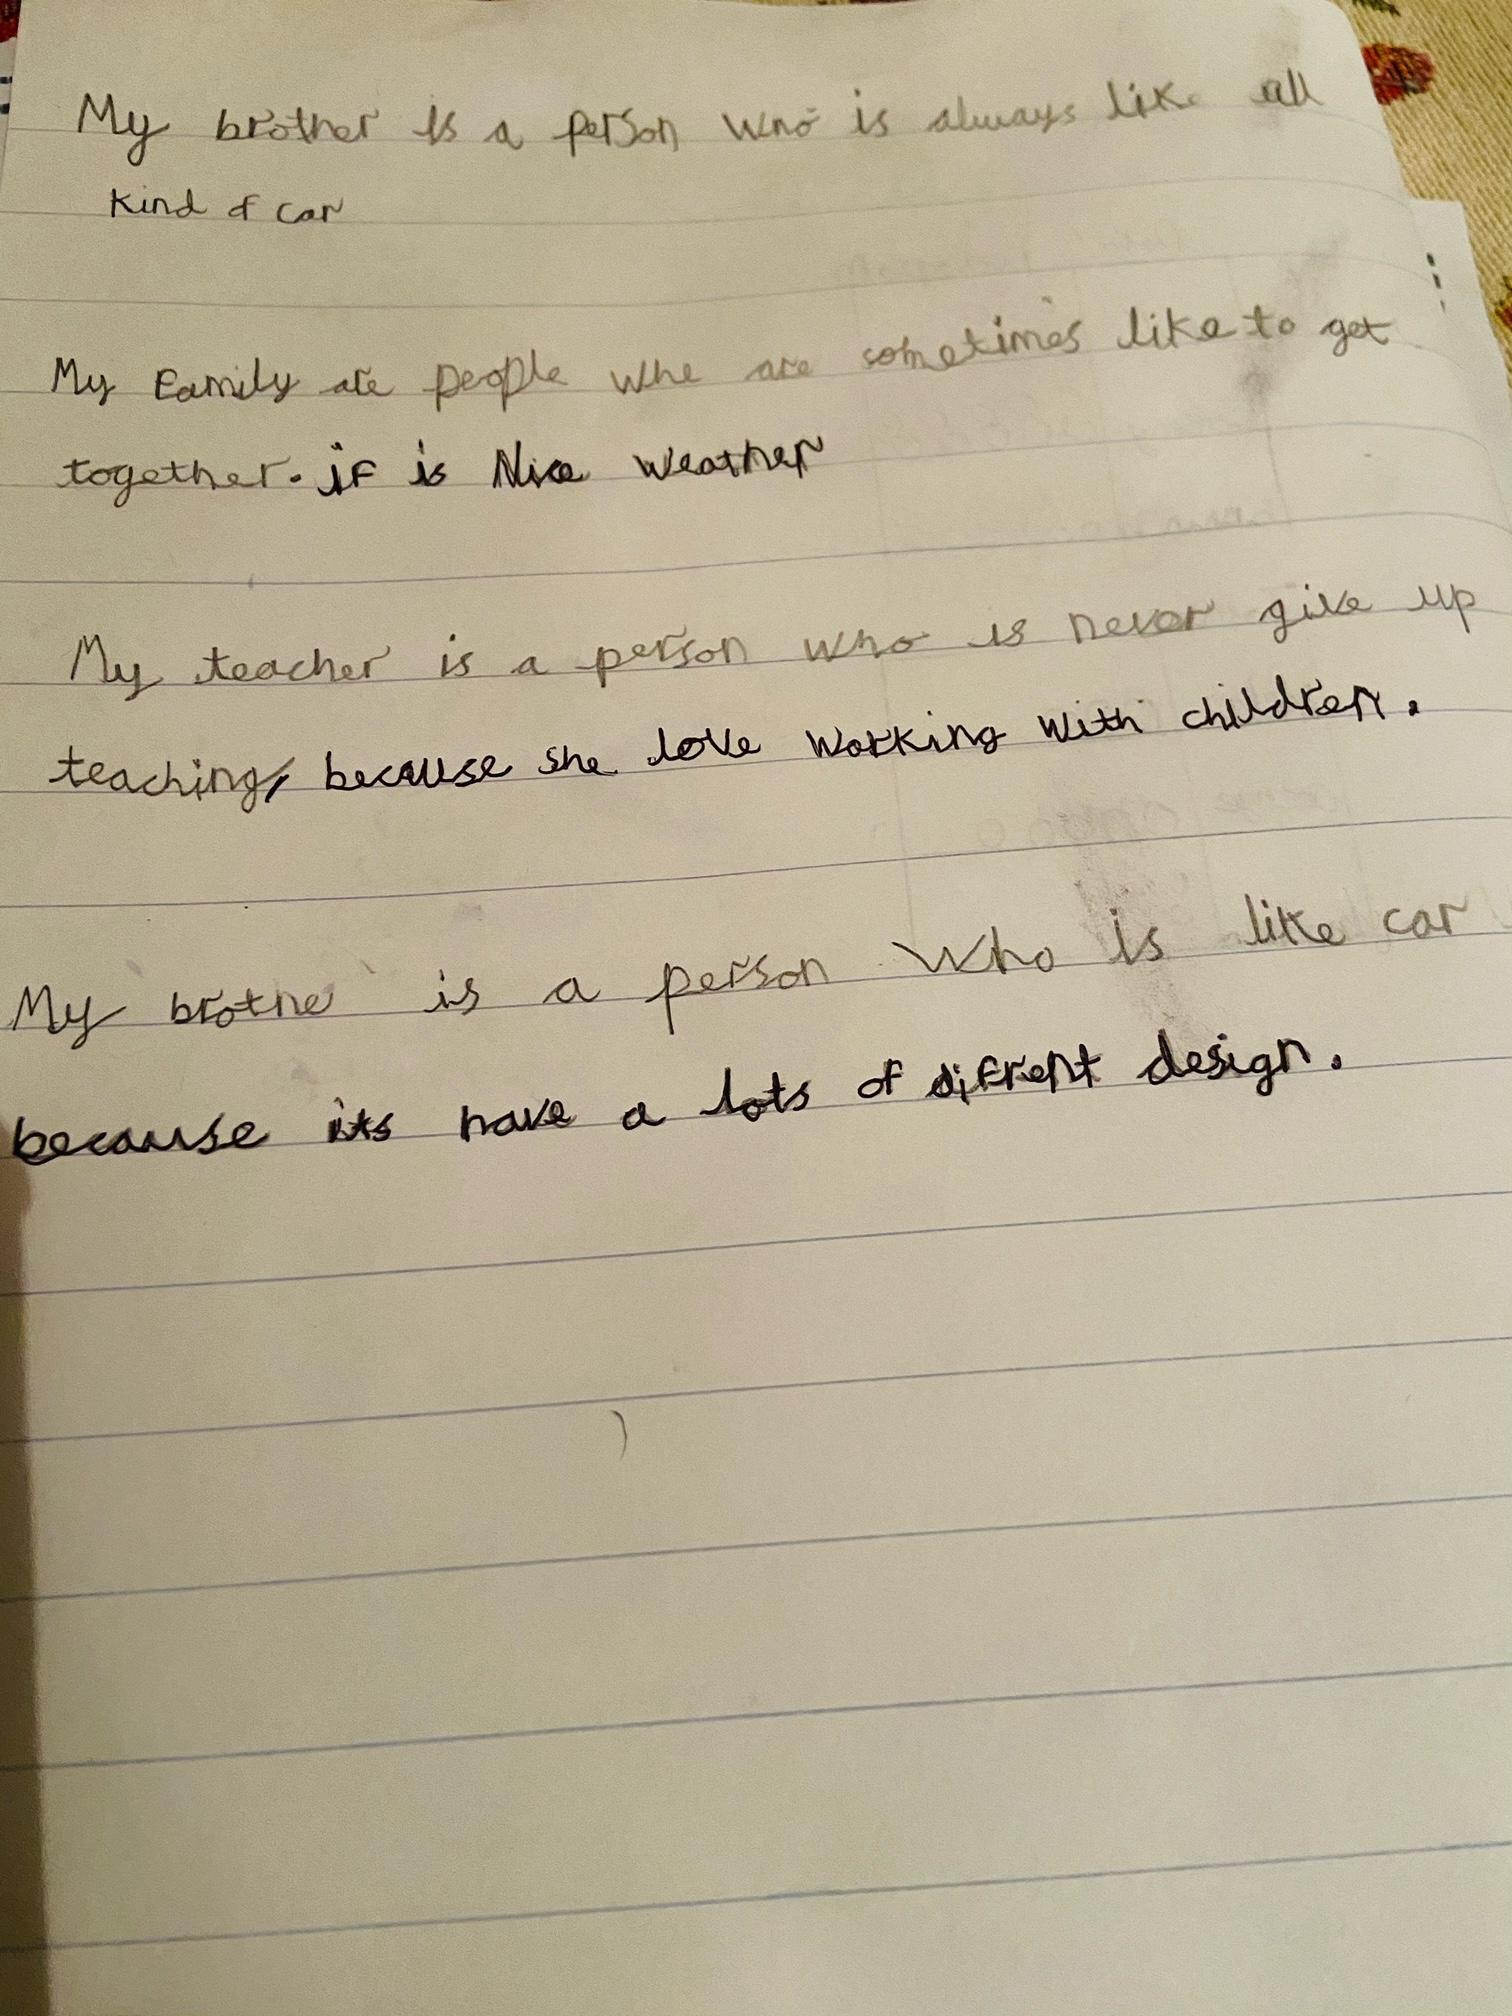 My brother is a person who is always like all
Kind of car
My Family are people whe are sometimes like to get
together. if is Nice Weather
My teacher is a person who is never give up
teaching, because she love working with children.
My brothe is a person who is like car
because its have a lots of difrent design.